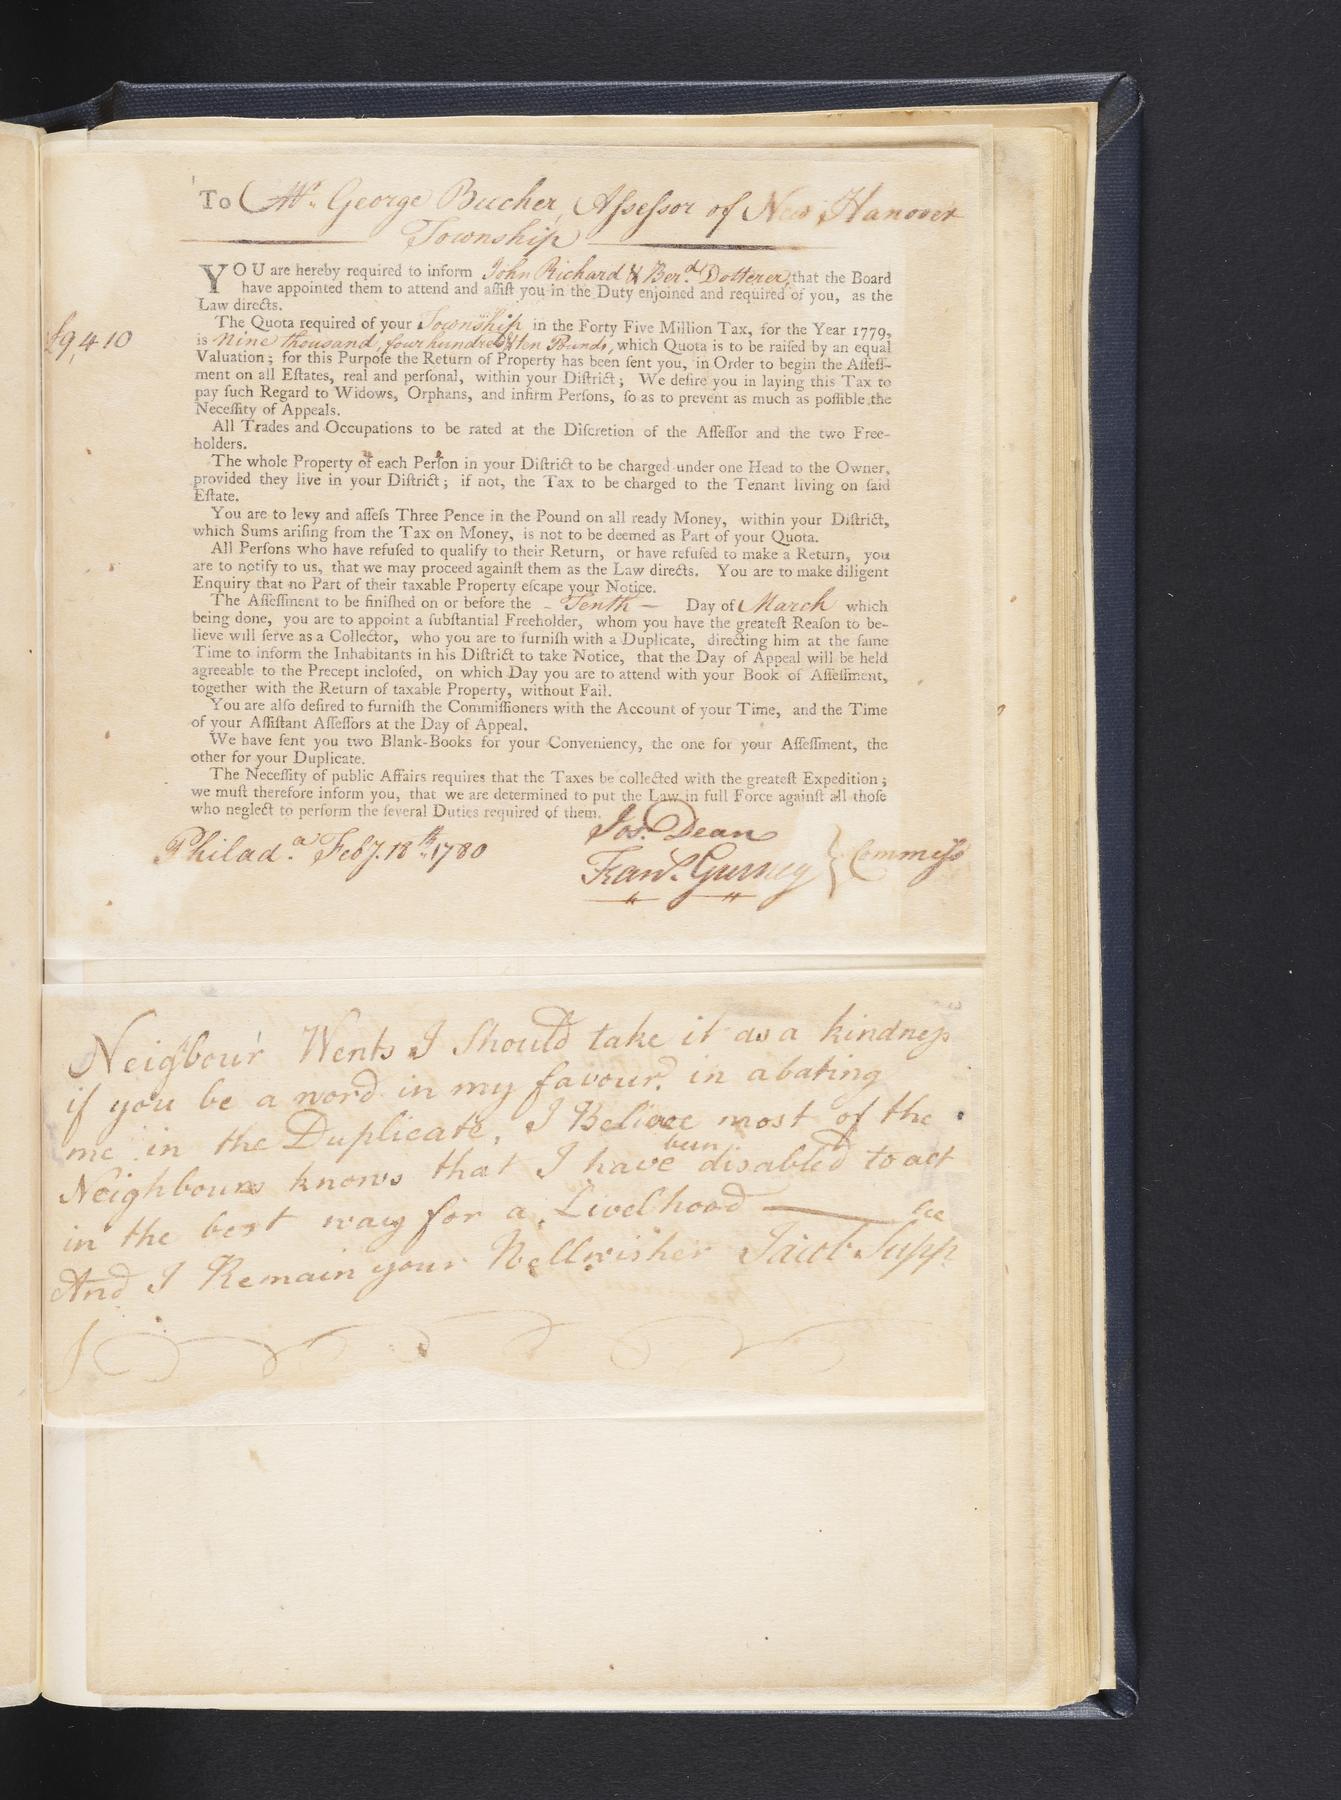 To Mr. George Bucher, Aſseſsor of New Hanover
Township
YOU are hereby required to inform John Richard & Ber.d Dotterer, that the Board
have appointed them to attend and aſſiſt you in the Duty enjoined and required of you, as the
Law directs.
The Quota required of your Township in the Forty Five Million Tax, for the Year 1779,
£9,410
is Nine thousand, four hundred & ten Pounds, which Quota is to be raiſed by an equal
Valuation; for this Purpoſe the Return of Property has been ſent you, in Order to begin the Aſſeſſ-
ment on all Eſtates, real and perſonal, within your Diſtrict; We deſire you in laying this Tax to
pay ſuch Regard to Widows, Orphans, and infirm Perſons, ſo as to prevent as much as poſſible the
Neceſſity of Appeals.
All Trades and Occupations to be rated at the Diſcretion of the Aſſeſſor and the two Free-
holders.
The whole Property of each Perſon in your Diſtrict to be charged under one Head to the Owner,
provided they live in your Diſtrict; if not, the Tax to be charged to the Tenant living on ſaid
Eſtate.
You are to levy and aſſeſs Three Pence in the Pound on all ready Money, within your Diſtrict,
which Sums ariſing from the Tax on Money, is not to be deemed as Part of your Quota.
All Perſons who have refuſed to qualify to their Return, or have refuſed to make a Return, you
are to notify to us, that we may proceed againſt them as the Law directs. You are to make diligent
Enquiry that no Part of their taxable Property eſcape your Notice.
The Aſſeſſment to be finiſhed on or before the - Tenth - Day of March which
being done, you are to appoint a ſubſtantial Freeholder, whom you have the greateſt Reaſon to be-
lieve will ſerve as a Collector, who you are to furniſh with a Duplicate, directing him at the ſame
Time to inform the Inhabitants in his Diſtrict to take Notice, that the Day of Appeal will be held
agreeable to the Precept incloſed, on which Day you are to attend with your Book of Aſſeſſment,
together with the Return of taxable Property, without Fail.
You are alſo deſired to furniſh the Commiſſioners with the Account of your Time, and the Time
of your Aſſiſtant Aſſeſſors at the Day of Appeal.
We have ſent you two Blank-Books for your Conveniency, the one for your Aſſeſſment, the
other for your Duplicate.
The Neceſſity of public Affairs requires that the Taxes be collected with the greateſt Expedition;
we muſt therefore inform you, that we are determined to put the Law in full Force againſt all thoſe
who neglect to perform the ſeveral Duties required of them.
Jos. Dean
Philad.a Feby. 18th 1780
Fran.s Gurney } Commiſs
Neigbour Wents I Should take it as a kindneſs
if you be a word in my favour. in abating
me in the Duplicate, I Believe most of the
Neighbours knows that I have been disabled to act
in the best way for a Livelhood — &c
And I Remain your Wellwisher Jacob Supp